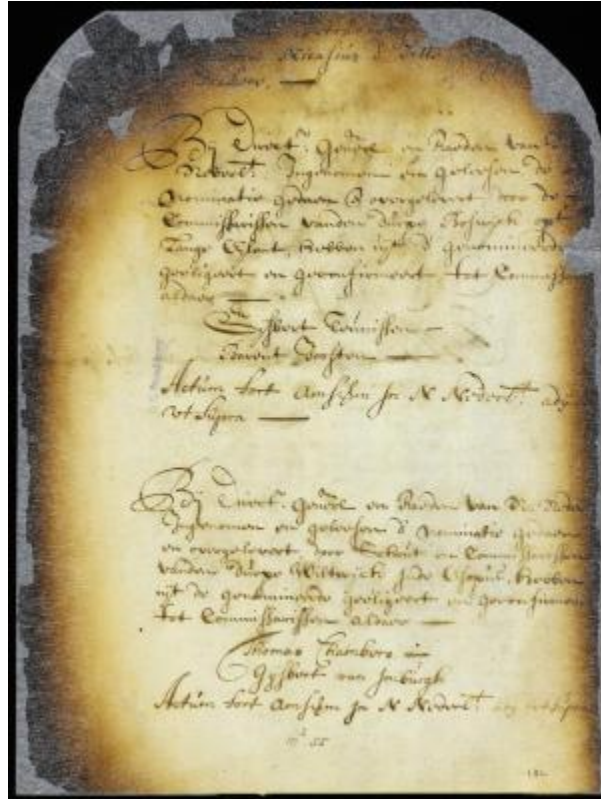 Nicasius d Sille
Bij Direct.r Gen̄rl en Raaden van
Nederl.t Ingenomen en gelesen de
nominatie gedaen & overgelevert door de
Commissarissen vanden durpe Boswijck opt
Lange Eylant, hebben uijt d' genomineerde
geeligeert en geconfirmeert tot Commissarissen
aldaer
Gysbert Teunissen
Barent Joosten
Actum fort Amst in N Nederl.t
ut supra
Bij Direct.r Gen̄rl en Raaden van N: Neder
Ingenomen en gelesen d' nominatie gedaen
en overgelevert door Schout en Commissarissen
vanden durpe Wiltwijck in de Esopus, hebben
uijt de genomineerde geeligeert en geconfirmeert
tot Commissarissen aldaer
Thomas Chambers
Gysbert van Imburgh
Actum fort Amst in N Nederl.t